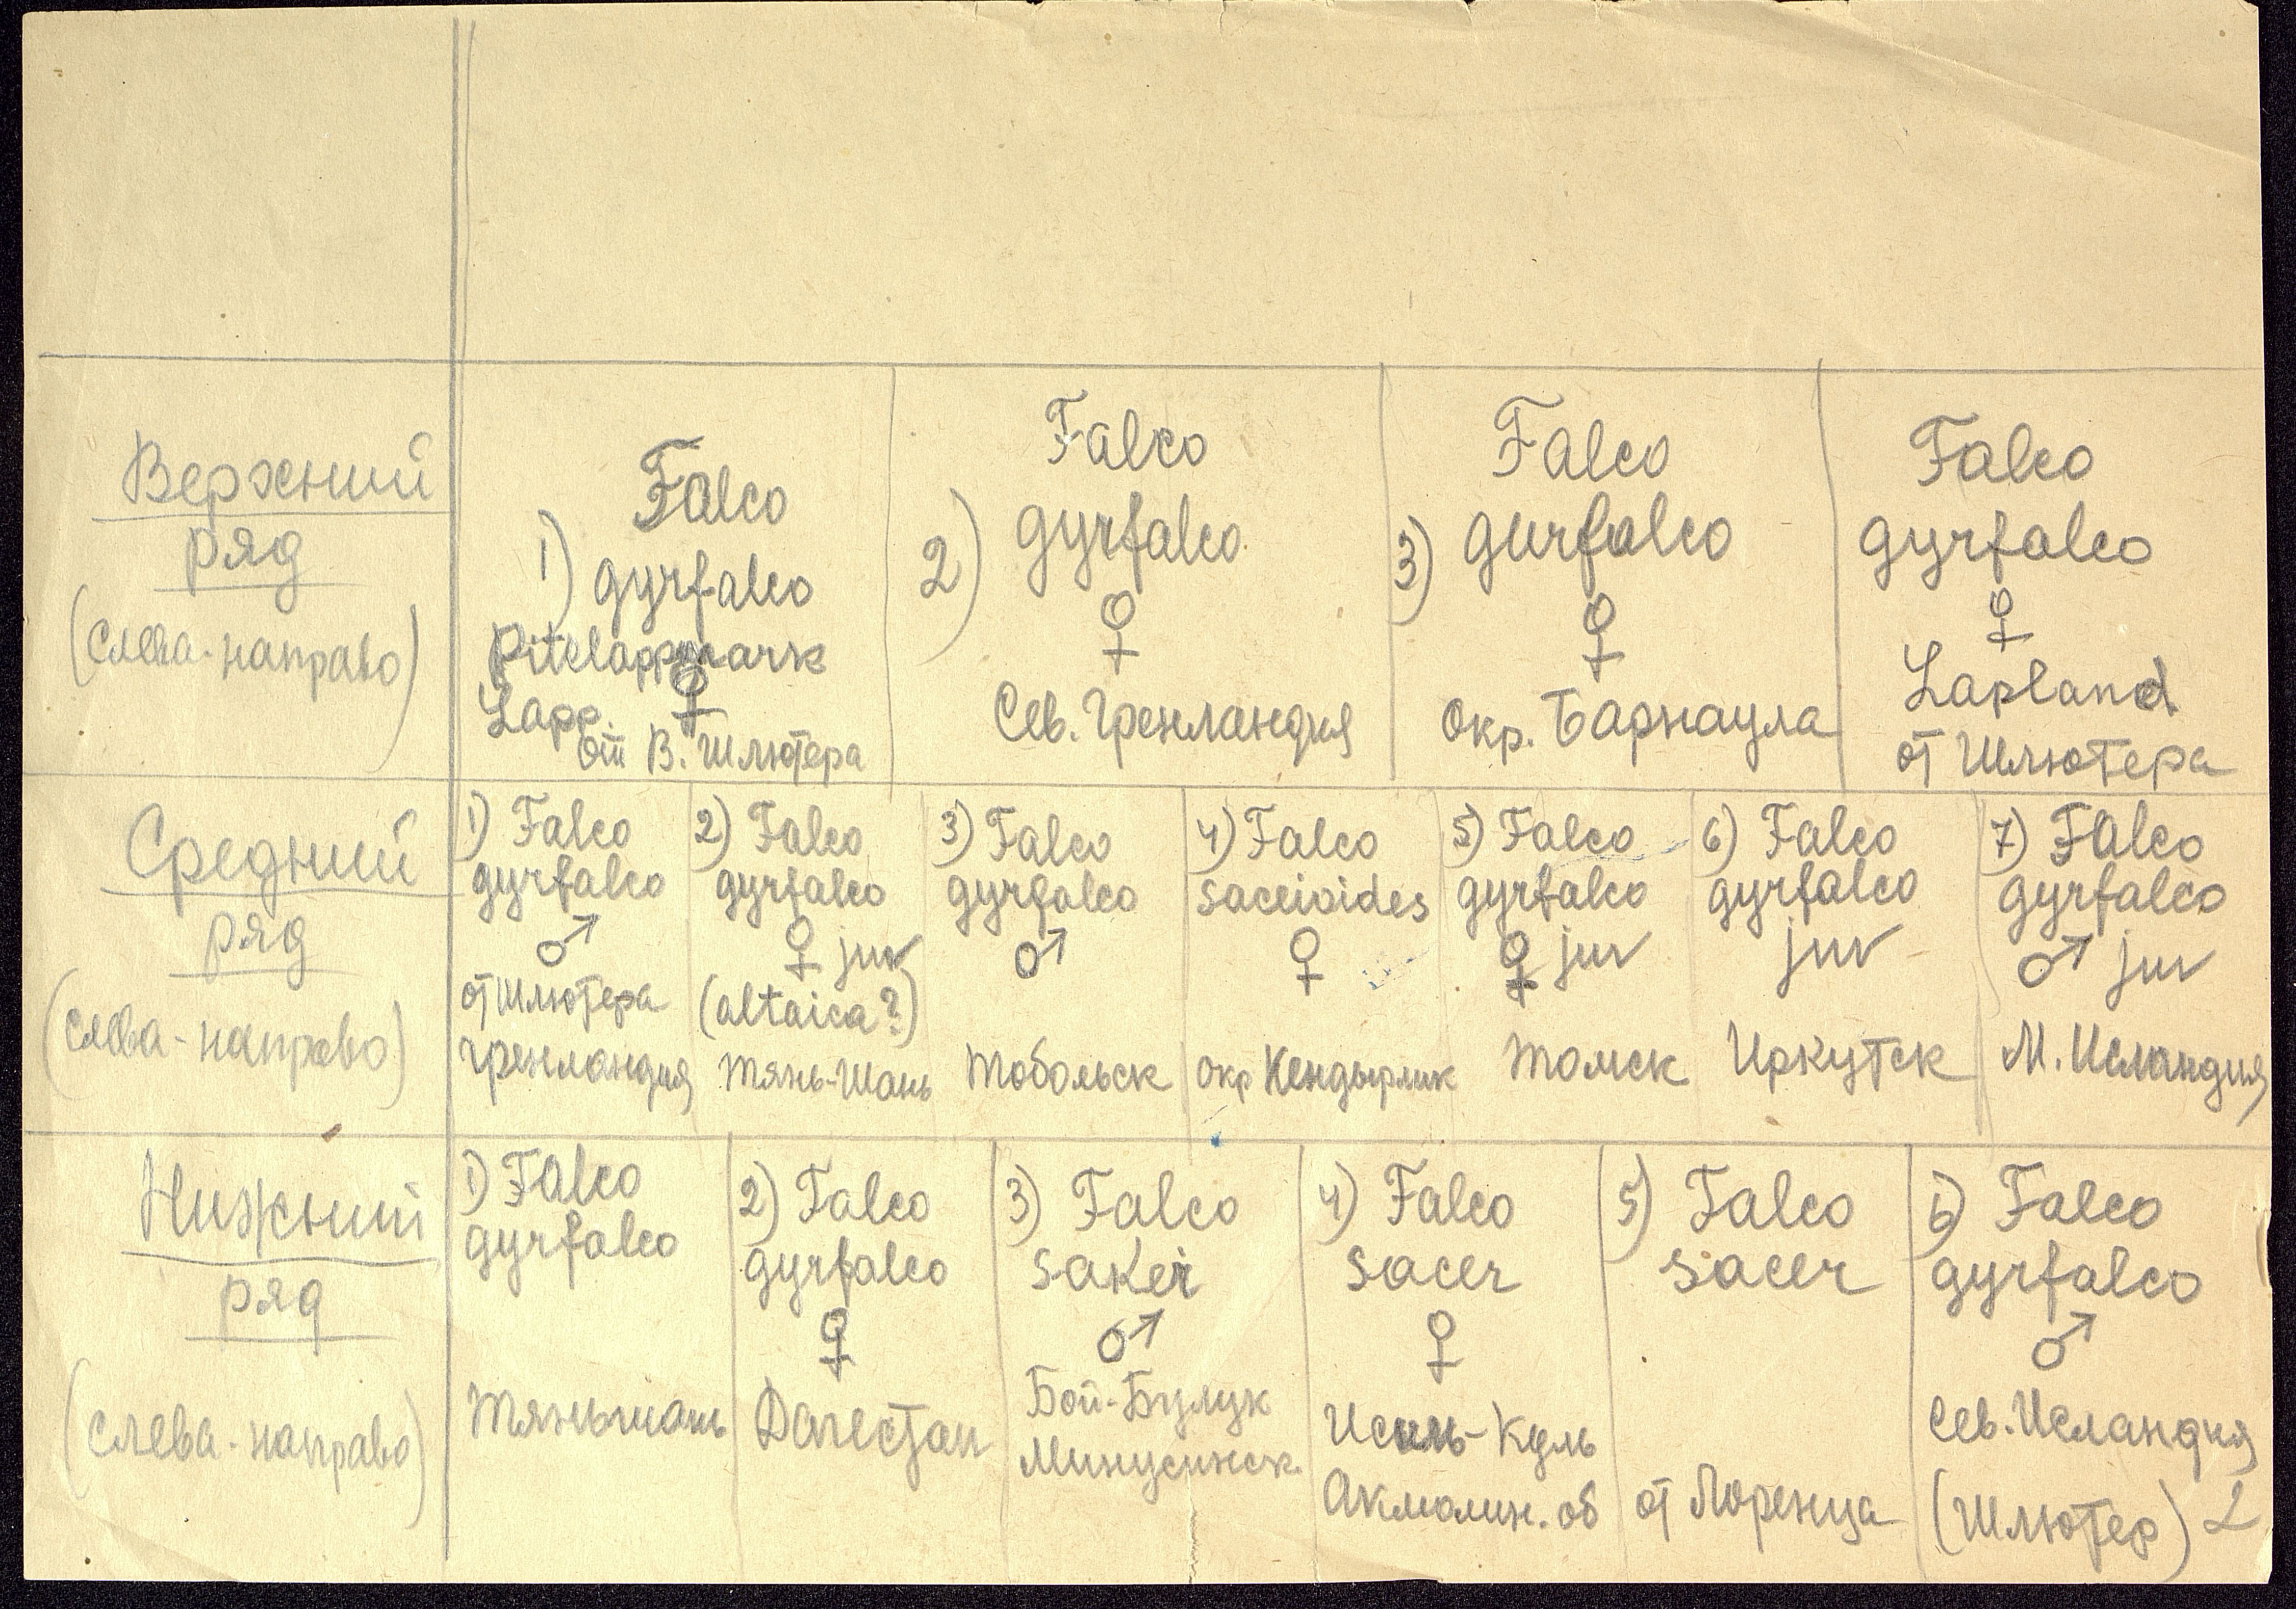 Верхний
ряд
(слева-направо)
Falco
1) gyrfalco
Pitelappmark
♀
Lapp.
от В. Шлютера
Falco
2) gyrfalco
♀
Сев. Гренландия
Falco
3) gurfalco
♀
Окр. Барнаула
Falco
gyrfalco
♀
Lapland
от Шлютера
Средний
ряд
(слева-направо)
1) Falco
gyrfalco
♂
от Шлютера
Гренландия
2) Falco
gyrfalco
♀ juv
(altaica?)
Тянь-Шань
3) Falco
gyrfalco
♂
Тобольск
4) Falco
saceroides
♀
окр Кендырлик
5) Falco
gyrfalco
♀ juv
Томск
6) Falco
gyrfalco
juv
Иркутск
7) Falco
gyrfalco
♂ juv
М. Исландия
Нижний
ряд
(слева-направо)
1) Falco
gyrfalco
Тяньшань
2) Falco
gyrfalco
♀
Дагестан
3) Falco
saker
♂
Бой-Булук
Минусинск.
4) Falco
sacer
♀
Исиль-Куль
Акмолин. об
5) Falco
sacer
от Лоренца
6) Falco
gyrfalco
♂
Сев. Исландия
(Шлютер)